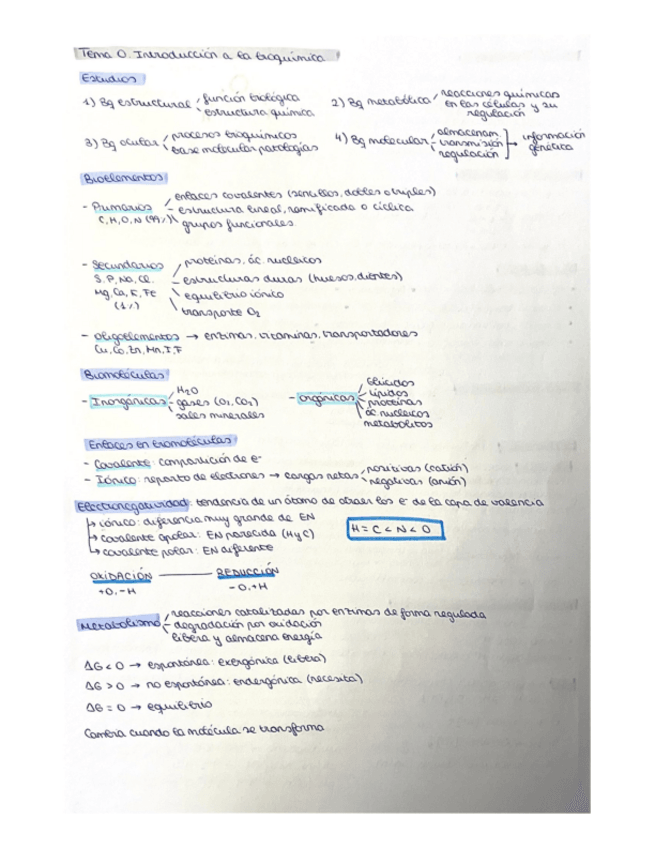 Tema 0. Introducción a la bioquímica
Estudios
1) Bq estructural función biológica
estructura química
2) Bq metabólica reacciones químicas
en las células y su
regulación
3) Bq ocular procesos bioquímicos
base molecular patologías
4) Bq molecular almacenam.
transmisión
regulación
información
genética
Bioelementos
- Primarios enlaces covalentes (sencillos, dobles o triples)
C, H, O, N (99%) - estructura lineal, ramificada o cíclica
grupos funcionales
- Secundarios proteínas, ác. nucleicos
S, P, Na, Cl - estructuras duras (huesos, dientes)
Mg, Ca, K, Fe equilibrio iónico
(1%) transporte O₂
- Oligoelementos → enzimas, vitaminas, transportadores
Cu, Co, Zn, Mn, I, F
Biomoléculas
- Inorgánicas H₂O
gases (O₂, CO₂)
sales minerales
- Orgánicas Glúcidos
Lípidos
proteínas
ác. nucleicos
metabolitos
Enlaces en biomoléculas
- Covalente: compartición de e⁻
- Iónico: reparto de electrones → cargas netas positivas (catión)
negativas (anión)
Electronegatividad: tendencia de un átomo de atraer los e⁻ de la capa de valencia
↳ iónico: diferencia muy grande de EN
↳ covalente apolar: EN parecida (H y C)
↳ covalente polar: EN diferente
H = C < N < O
OXIDACIÓN — REDUCCIÓN
+O, -H -O, +H
Metabolismo reacciones catalizadas por enzimas de forma regulada
- degradación por oxidación
libera y almacena energía
ΔG < 0 → espontánea: exergónica (libera)
ΔG > 0 → no espontánea: endergónica (necesita)
ΔG = 0 → equilibrio
Cambia cuando la molécula se transforma